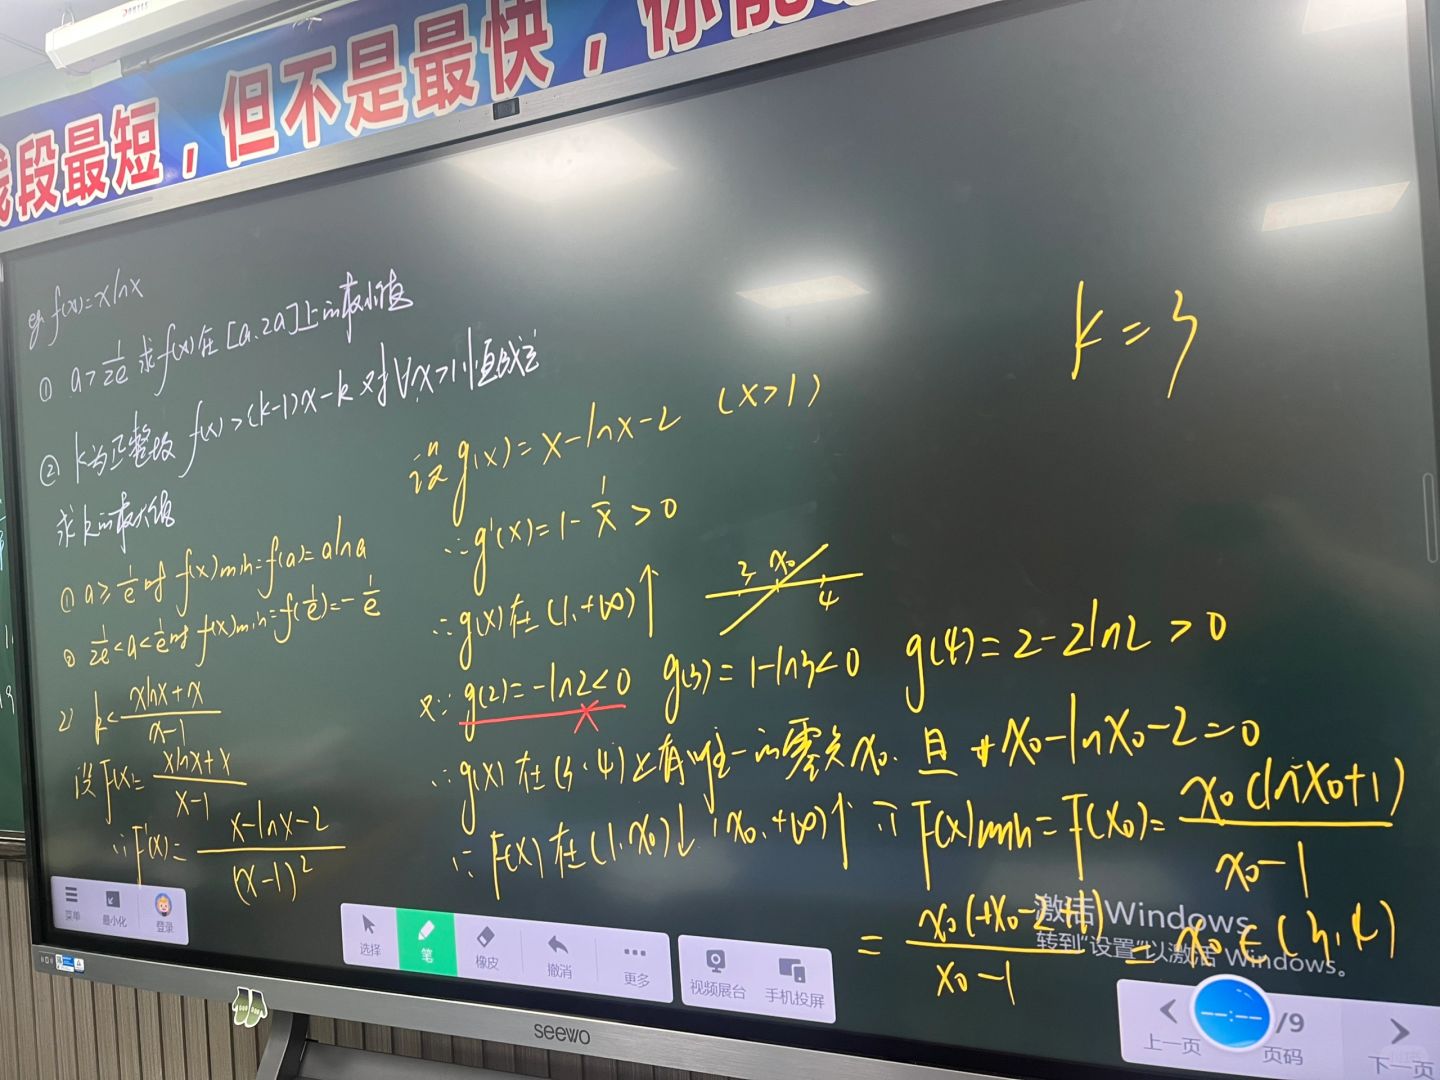 线段最短，但不是最快，你能
eg f(x)=xlnx
① a>1/2e 求f(x)在[a,2a]上的最小值
② k为正整数 f(x)>(k-1)x-k 对∀x>1恒成立
求k的最大值
① a≥1/e时 f(x)min=f(a)=alna
② 1/2e<a<1/e时 f(x)min=f(1/e)=-1/e
2) k<(xlnx+x)/(x-1)
设F(x)=(xlnx+x)/(x-1)
∴F'(x)=(x-lnx-2)/(x-1)²
设g(x)=x-lnx-2 (x>1)
∴g'(x)=1-1/x>0
∴g(x)在(1,+∞)↑
3 x₀ 4
又∵g(2)=-ln2<0 g(3)=1-ln3<0 g(4)=2-2ln2>0
∴g(x)在(3,4)上有唯一的零点x₀.且 x₀-lnx₀-2=0
∴F(x)在(1,x₀)↓ (x₀,+∞)↑ ∴F(x)min=F(x₀)=x₀(lnx₀+1)/(x₀-1)
=x₀(x₀-2+1)/(x₀-1)=x₀∈(3,4)
k=3
激活 Windows
转到"设置"以激活 Windows。
菜单 最小化 登录
选择 笔 橡皮 撤消 更多
视频展台 手机投屏
上一页 --:-- /9 页码 下一页
seewo